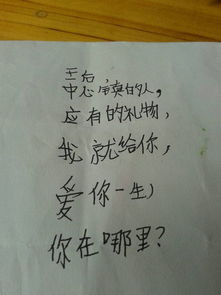 王后,
中心审真的人,
应有的礼物,
我就给你,
爱你一生)
你在哪里?